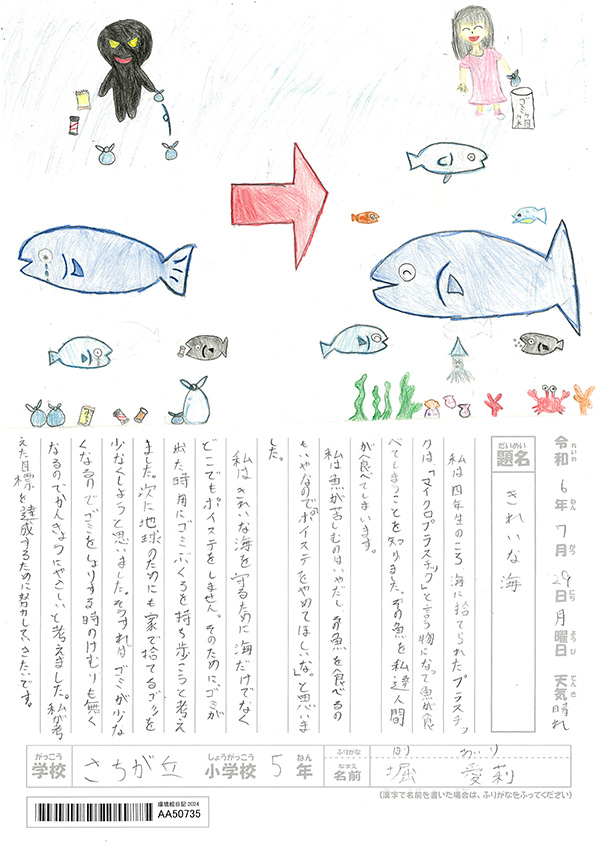 ゴミ箱
令和6年7月29日月曜日 天気 晴れ
れいわ ねん がつ にち ようび てんき
だいめい
題名
きれいな海
私は四年生のころ、海に捨てられたプラスチッ
クは「マイクロプラスチック」と言う物になって魚が食
べてしまうことを知りました。その魚を私達人間
が食べてしまいます。
私は魚が苦しむのはいやだし、その魚を食べるの
もいやなので「ポイステをやめてほしいな。」と思いま
した。
私はきれいな海を守るために海だけでなく
どこでもポイステをしません。そのために、ゴミが
出た時用にゴミぶくろを持ち歩こうと考え
ました。次に地球のためにも家で捨てるゴミを
少なくしようと思いました。そうすればゴミが少な
くなるのでゴミをしょりする時のけむりも無く
なるのでかんきょうにやさしいと考えました。私が考
えた目標を達成するために努力していきたいです。
がっこう しょうがっこう ねん ふりがな ほり あいり
学校 さちが丘 小学校 5年 なまえ 名前 堀 愛莉
(漢字で名前を書いた場合は、ふりがなをふってください)
環境絵日記2024
AA50735